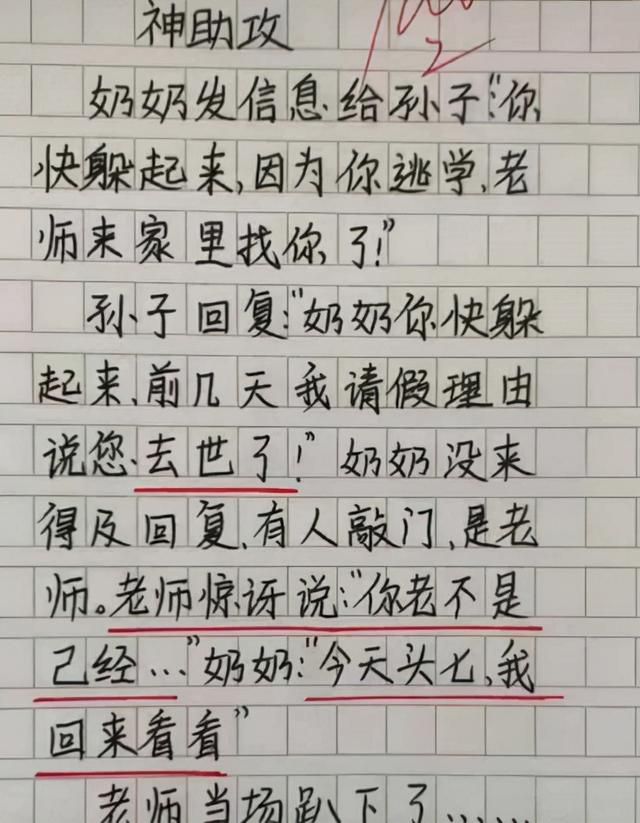 神助攻
奶奶发信息给孙子:"你
快躲起来,因为你逃学,老
师来家里找你了!"
孙子回复:"奶奶你快躲
起来,前几天我请假理由
说您去世了!"奶奶没来
得及回复,有人敲门,是老
师。老师惊讶说:"你老不是
已经…"奶奶:"今天头七,我
回来看看"
老师当场趴下了……